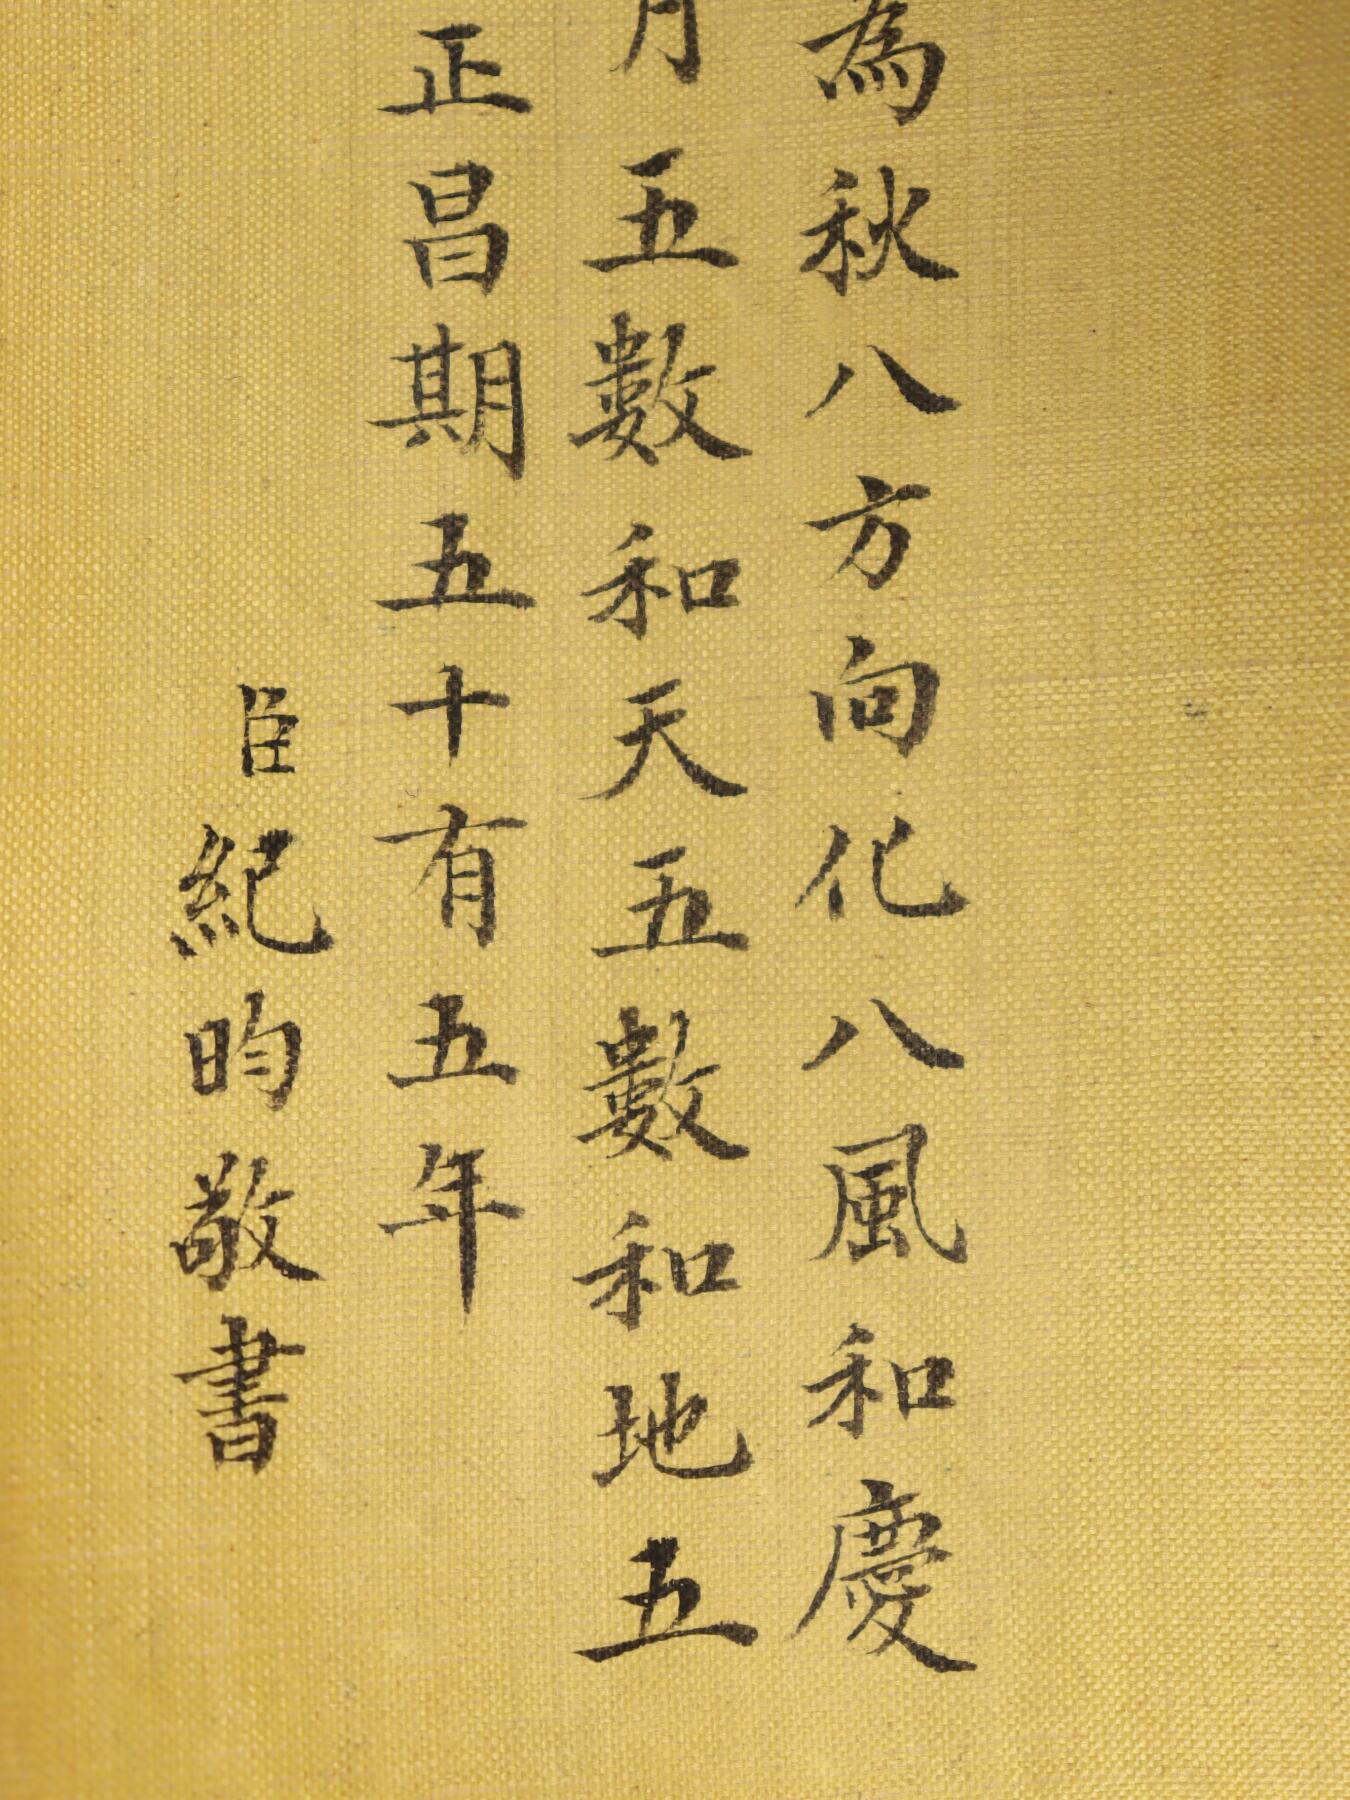 為秋八方向化八風和慶
月五數和天五數和地五
正昌期五十有五年
臣紀昀敬書